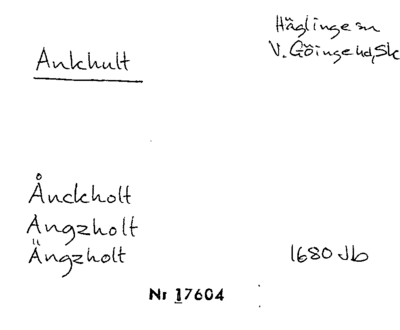 Häglinge sn
Ankhult
V. Göinge hd, Sk
Ånckholt
Angzholt
Ängzholt 1680 Jb
Nr 17604